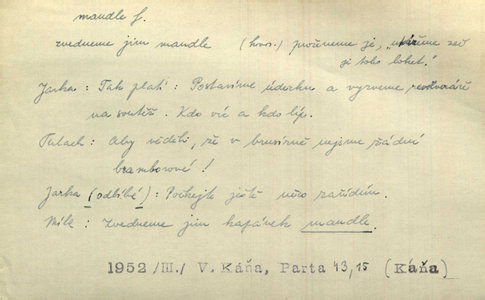 mandle f.
zvedneme jim mandle (hovor.) proženeme je, "utrhneme zač
ji toho loket!
Jarka: Tak platí: Postavíme úderku a vyzveme revolveráře
na soutěž. Kdo víc a kdo líp.
Palach: Aby věděli, že v brusírně nejsme žádní
bramborové!
Jarka (odlíbé): Počkejte ještě něco zařídím.
Míla: Zvedneme jim kapánek mandle.
1952/III./ V. Káňa, Parta 43,15 (Káňa)